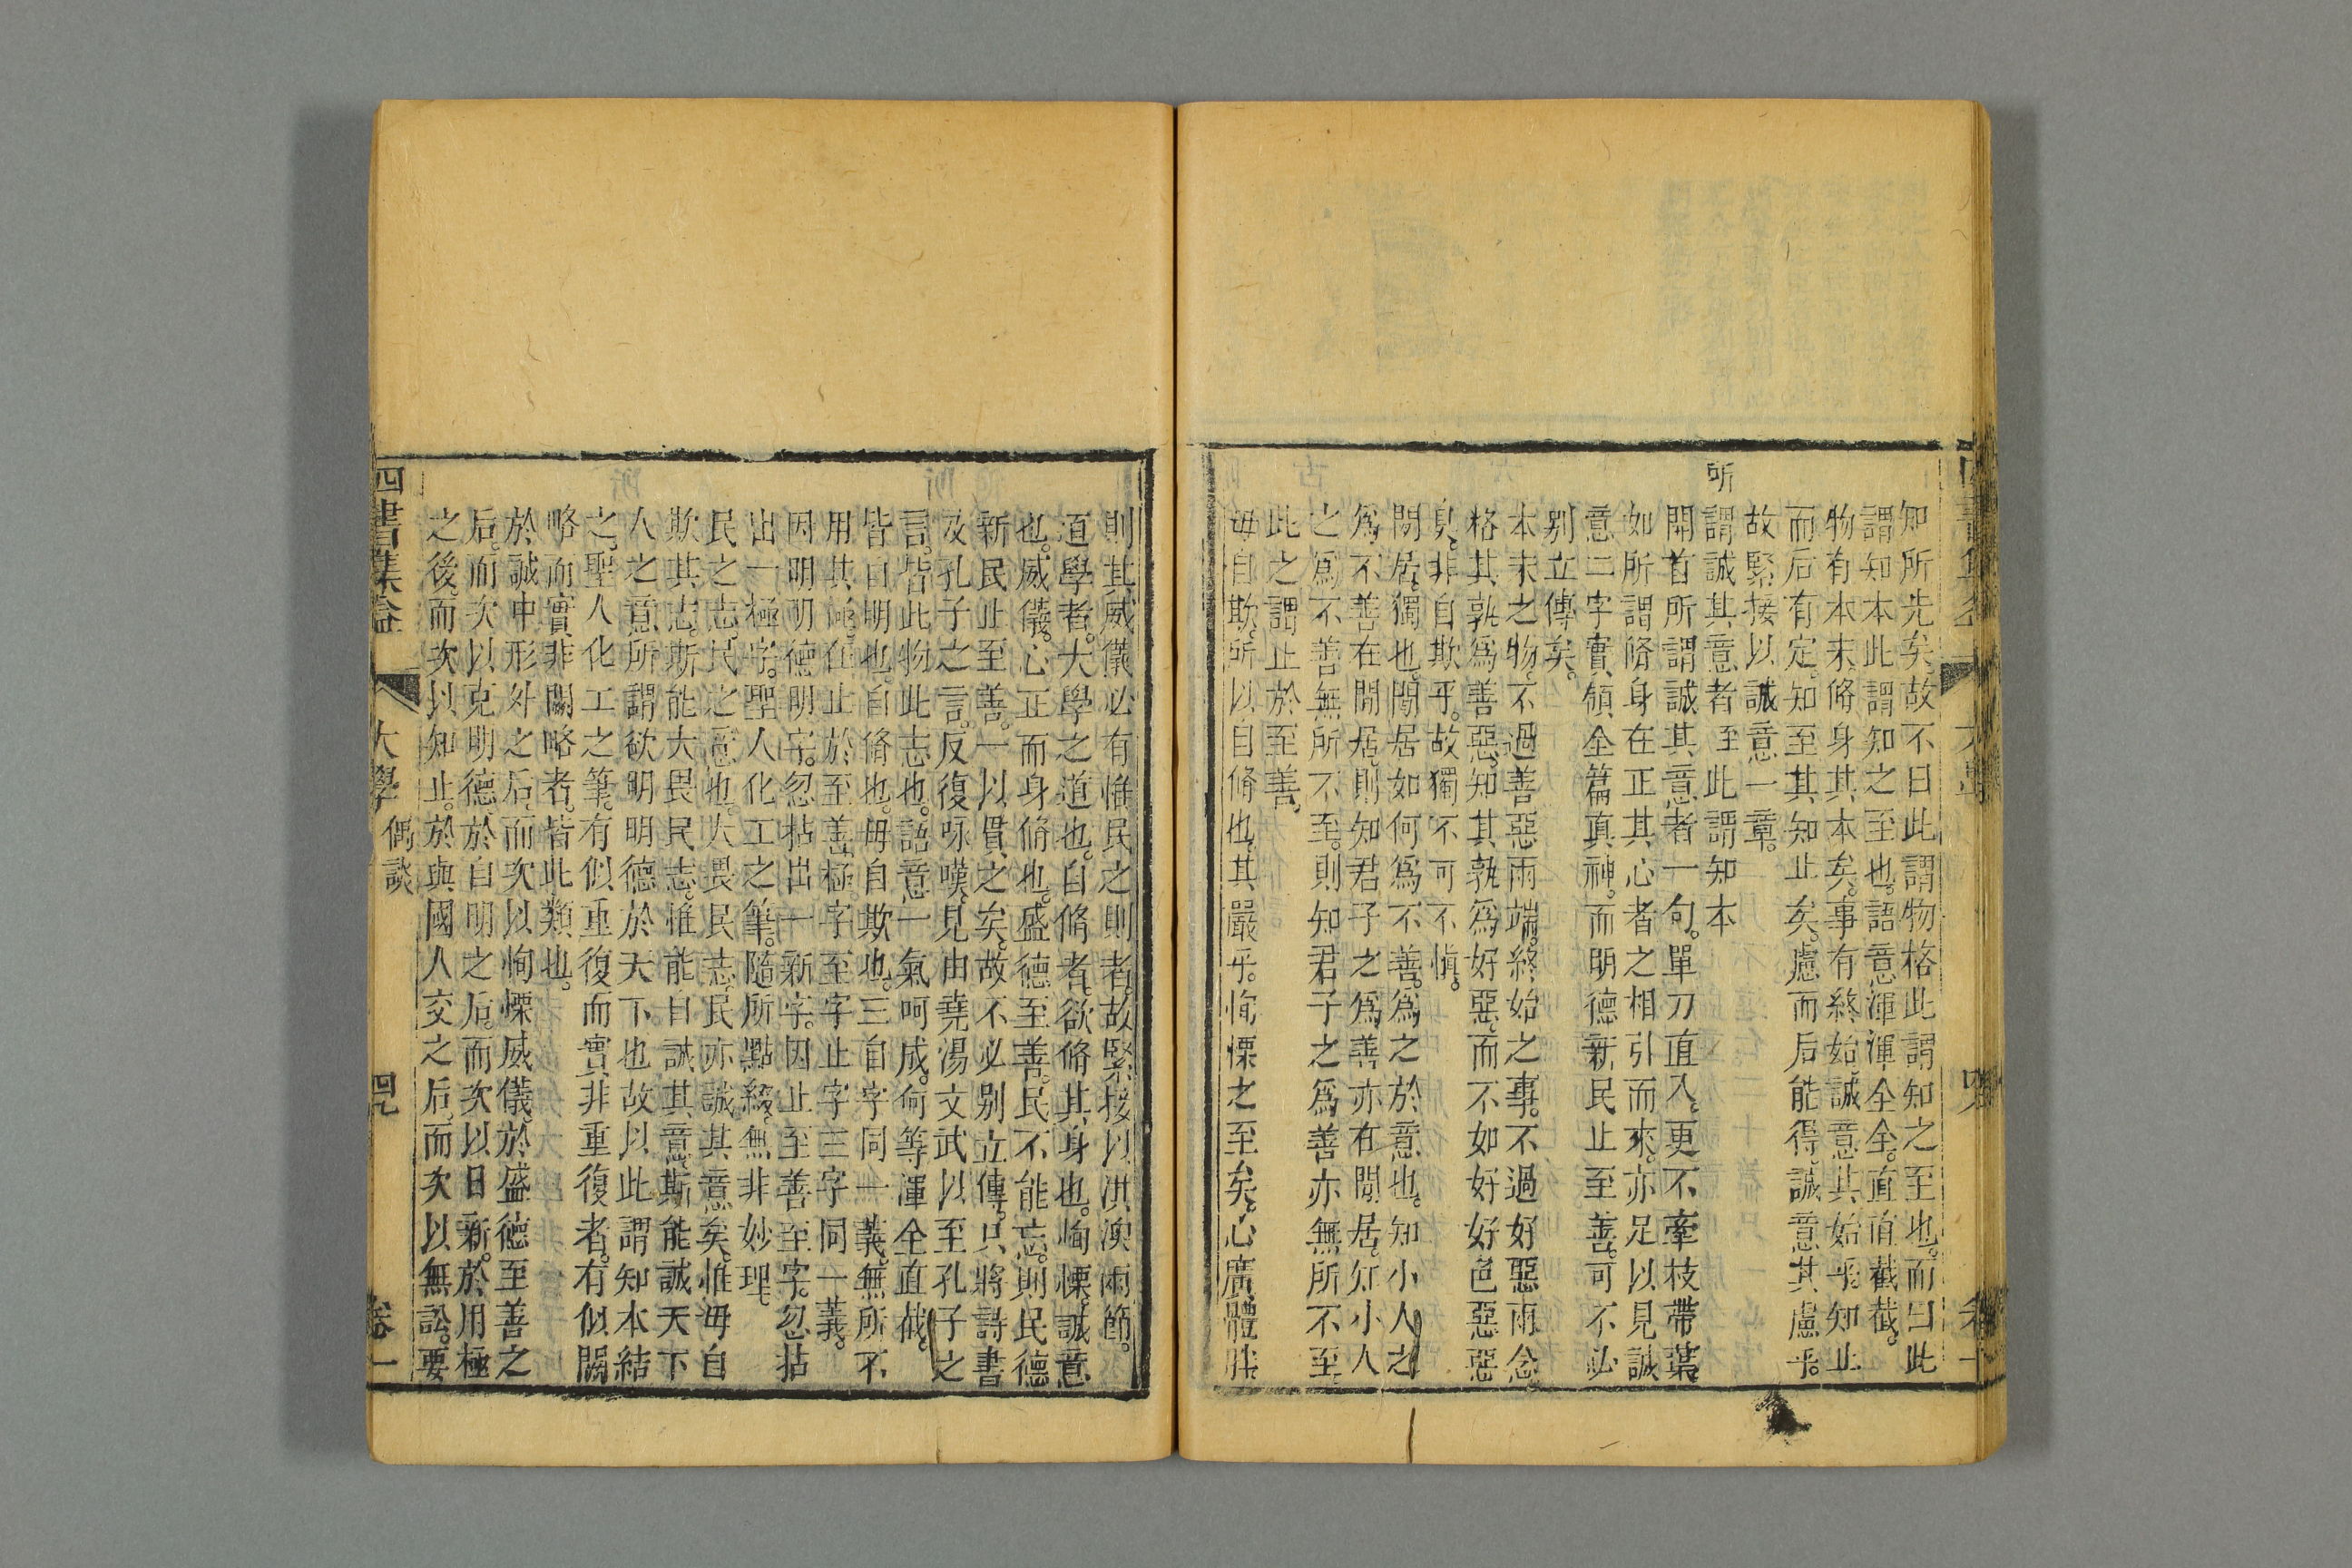 知所先矣故不曰此謂物格此謂知之至也而曰此
謂知本此謂知之至也語意渾渾全全直直截截
物有本末脩身其本矣事有終始誠意其始乎知止
而后有定知至其知止矣慮而后能得誠意其慮乎
故緊接以誠意一章
所謂誠其意者至此謂知本
開首所謂誠其意者一句單刀直入更不牽枝帶葉
如所謂脩身在正其心者之相引而來亦足以見誠
意二字實領全篇真神而明德新民止至善可不必
别立傳矣
本末之物不過善惡兩端終始之事不過好惡兩念
格其孰為善惡知其孰為好惡而不如好好色惡惡
臭非自欺乎故獨不可不慎
閒居獨也閒居如何為不善為之於意也知小人之
為不善在閒居則知君子之為善亦在閒居知小人
之為不善無所不至則知君子之為善亦無所不至
此之謂止於至善
毋自欺所以自脩也其嚴乎恂慄之至矣心廣體胖
則其威儀必有惟民之則者故緊接以淇澳兩節
道學者大學之道也自脩者欲脩其身也恂慄誠意
也威儀心正而身脩也盛德至善民不能忘則民德
新民止至善一以貫之矣故不必别立傳只將詩書
及孔子之言反復咏嘆見由堯湯文武以至孔子之
言皆此物此志也語意一氣呵成何等渾全直截
皆曰明也自脩也毋自欺也三自字同一義無所不
用其極在止於至善極字至字止字三字同一義
因明明德明字忽拈出一新字因止至善至字忽拈
出一極字聖人化工之筆隨所點綴無非妙理
民之志民之意也大畏民志民亦誠其意矣惟毋自
欺其志斯能大畏民志惟能自誠其意斯能誠天下
人之意所謂欲明明德於天下也故以此謂知本結
之聖人化工之筆有似重復而實非重復者有似闕
略而實非闕略者皆此類也
於誠中形外之后而次以恂慄威儀於盛德至善之
后而次以克明德於自明之后而次以日新於用極
之後而次以知止於與國人交之后而次以無訟要
四書集益
大學
偶談
四九
卷一